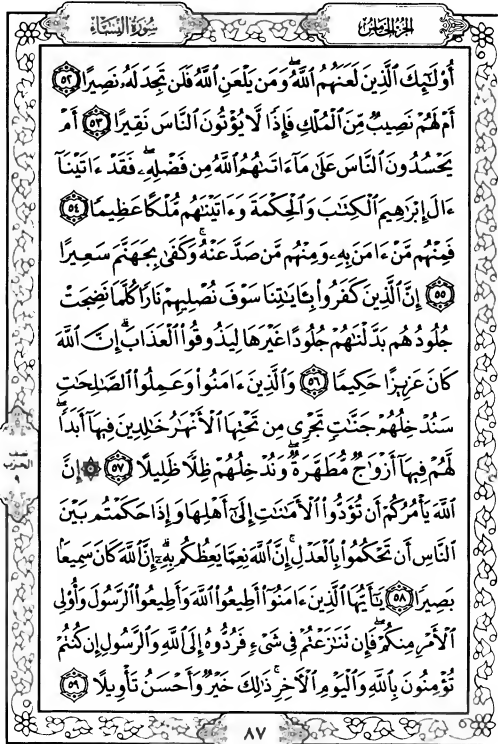 الجزء الخامس
سورة النساء
أُوْلَٰٓئِكَ ٱلَّذِينَ لَعَنَهُمُ ٱللَّهُۖ وَمَن يَلْعَنِ ٱللَّهُ فَلَن تَجِدَ لَهُۥ نَصِيرًا ٥٢
أَمْ لَهُمْ نَصِيبٌ مِّنَ ٱلْمُلْكِ فَإِذًا لَّا يُؤْتُونَ ٱلنَّاسَ نَقِيرًا ٥٣ أَمْ
يَحْسُدُونَ ٱلنَّاسَ عَلَىٰ مَآ ءَاتَىٰهُمُ ٱللَّهُ مِن فَضْلِهِۦۖ فَقَدْ ءَاتَيْنَآ
ءَالَ إِبْرَٰهِيمَ ٱلْكِتَٰبَ وَٱلْحِكْمَةَ وَءَاتَيْنَٰهُم مُّلْكًا عَظِيمًا ٥٤
فَمِنْهُم مَّنْ ءَامَنَ بِهِۦ وَمِنْهُم مَّن صَدَّ عَنْهُۚ وَكَفَىٰ بِجَهَنَّمَ سَعِيرًا
٥٥ إِنَّ ٱلَّذِينَ كَفَرُواْ بِـَٔايَٰتِنَا سَوْفَ نُصْلِيهِمْ نَارًا كُلَّمَا نَضِجَتْ
جُلُودُهُم بَدَّلْنَٰهُمْ جُلُودًا غَيْرَهَا لِيَذُوقُواْ ٱلْعَذَابَۗ إِنَّ ٱللَّهَ
كَانَ عَزِيزًا حَكِيمًا ٥٦ وَٱلَّذِينَ ءَامَنُواْ وَعَمِلُواْ ٱلصَّٰلِحَٰتِ
سَنُدْخِلُهُمْ جَنَّٰتٍ تَجْرِي مِن تَحْتِهَا ٱلْأَنْهَٰرُ خَٰلِدِينَ فِيهَآ أَبَدًاۖ
لَّهُمْ فِيهَآ أَزْوَٰجٌ مُّطَهَّرَةٌۖ وَنُدْخِلُهُمْ ظِلًّا ظَلِيلًا ٥٧ ۞ إِنَّ
ٱللَّهَ يَأْمُرُكُمْ أَن تُؤَدُّواْ ٱلْأَمَٰنَٰتِ إِلَىٰٓ أَهْلِهَا وَإِذَا حَكَمْتُم بَيْنَ
ٱلنَّاسِ أَن تَحْكُمُواْ بِٱلْعَدْلِۚ إِنَّ ٱللَّهَ نِعِمَّا يَعِظُكُم بِهِۦٓۗ إِنَّ ٱللَّهَ كَانَ سَمِيعًۢا
بَصِيرًا ٥٨ يَٰٓأَيُّهَا ٱلَّذِينَ ءَامَنُوٓاْ أَطِيعُواْ ٱللَّهَ وَأَطِيعُواْ ٱلرَّسُولَ وَأُوْلِي
ٱلْأَمْرِ مِنكُمْۖ فَإِن تَنَٰزَعْتُمْ فِي شَيْءٍ فَرُدُّوهُ إِلَى ٱللَّهِ وَٱلرَّسُولِ إِن كُنتُمْ
تُؤْمِنُونَ بِٱللَّهِ وَٱلْيَوْمِ ٱلْأٓخِرِۚ ذَٰلِكَ خَيْرٌ وَأَحْسَنُ تَأْوِيلًا ٥٩
الحزب
٩
٨٧